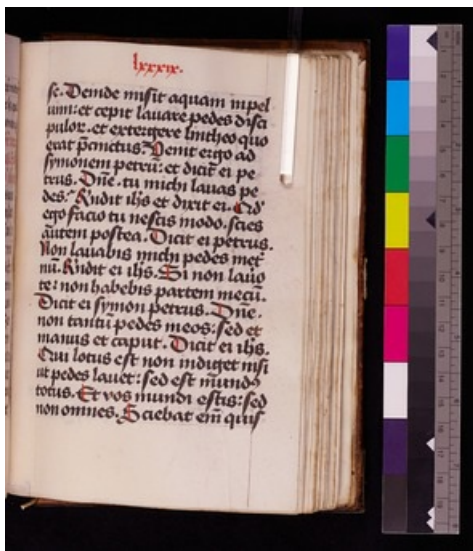 lxxxix.
se. Deinde misit aquam in pel
uim: et cepit lauare pedes disci
pulor. et extergere lintheo quo
erat p̄cinctus. Venit ergo ad
symonem petrū: et dicit ei pe
trus. Dn̄e. tu michi lauas pe
des: Rn̄dit ih̄s et dixit ei. Qd̄
ego facio tu nescis modo. scies
autem postea. Dicit ei petrus.
Non lauabis michi pedes in et̄
nū. Rn̄dit ei ih̄s. Si non lauo
te: non habebis partem mecū.
Dicit ei symon petrus. Dn̄e.
non tantū pedes meos: sed et
manus et caput. Dicit ei ih̄s.
Qui lotus est non indiget nisi
ut pedes lauet: sed est mundꝯ
totus. Et vos mundi estis: sed
non omnes. Sciebat em̄ quis